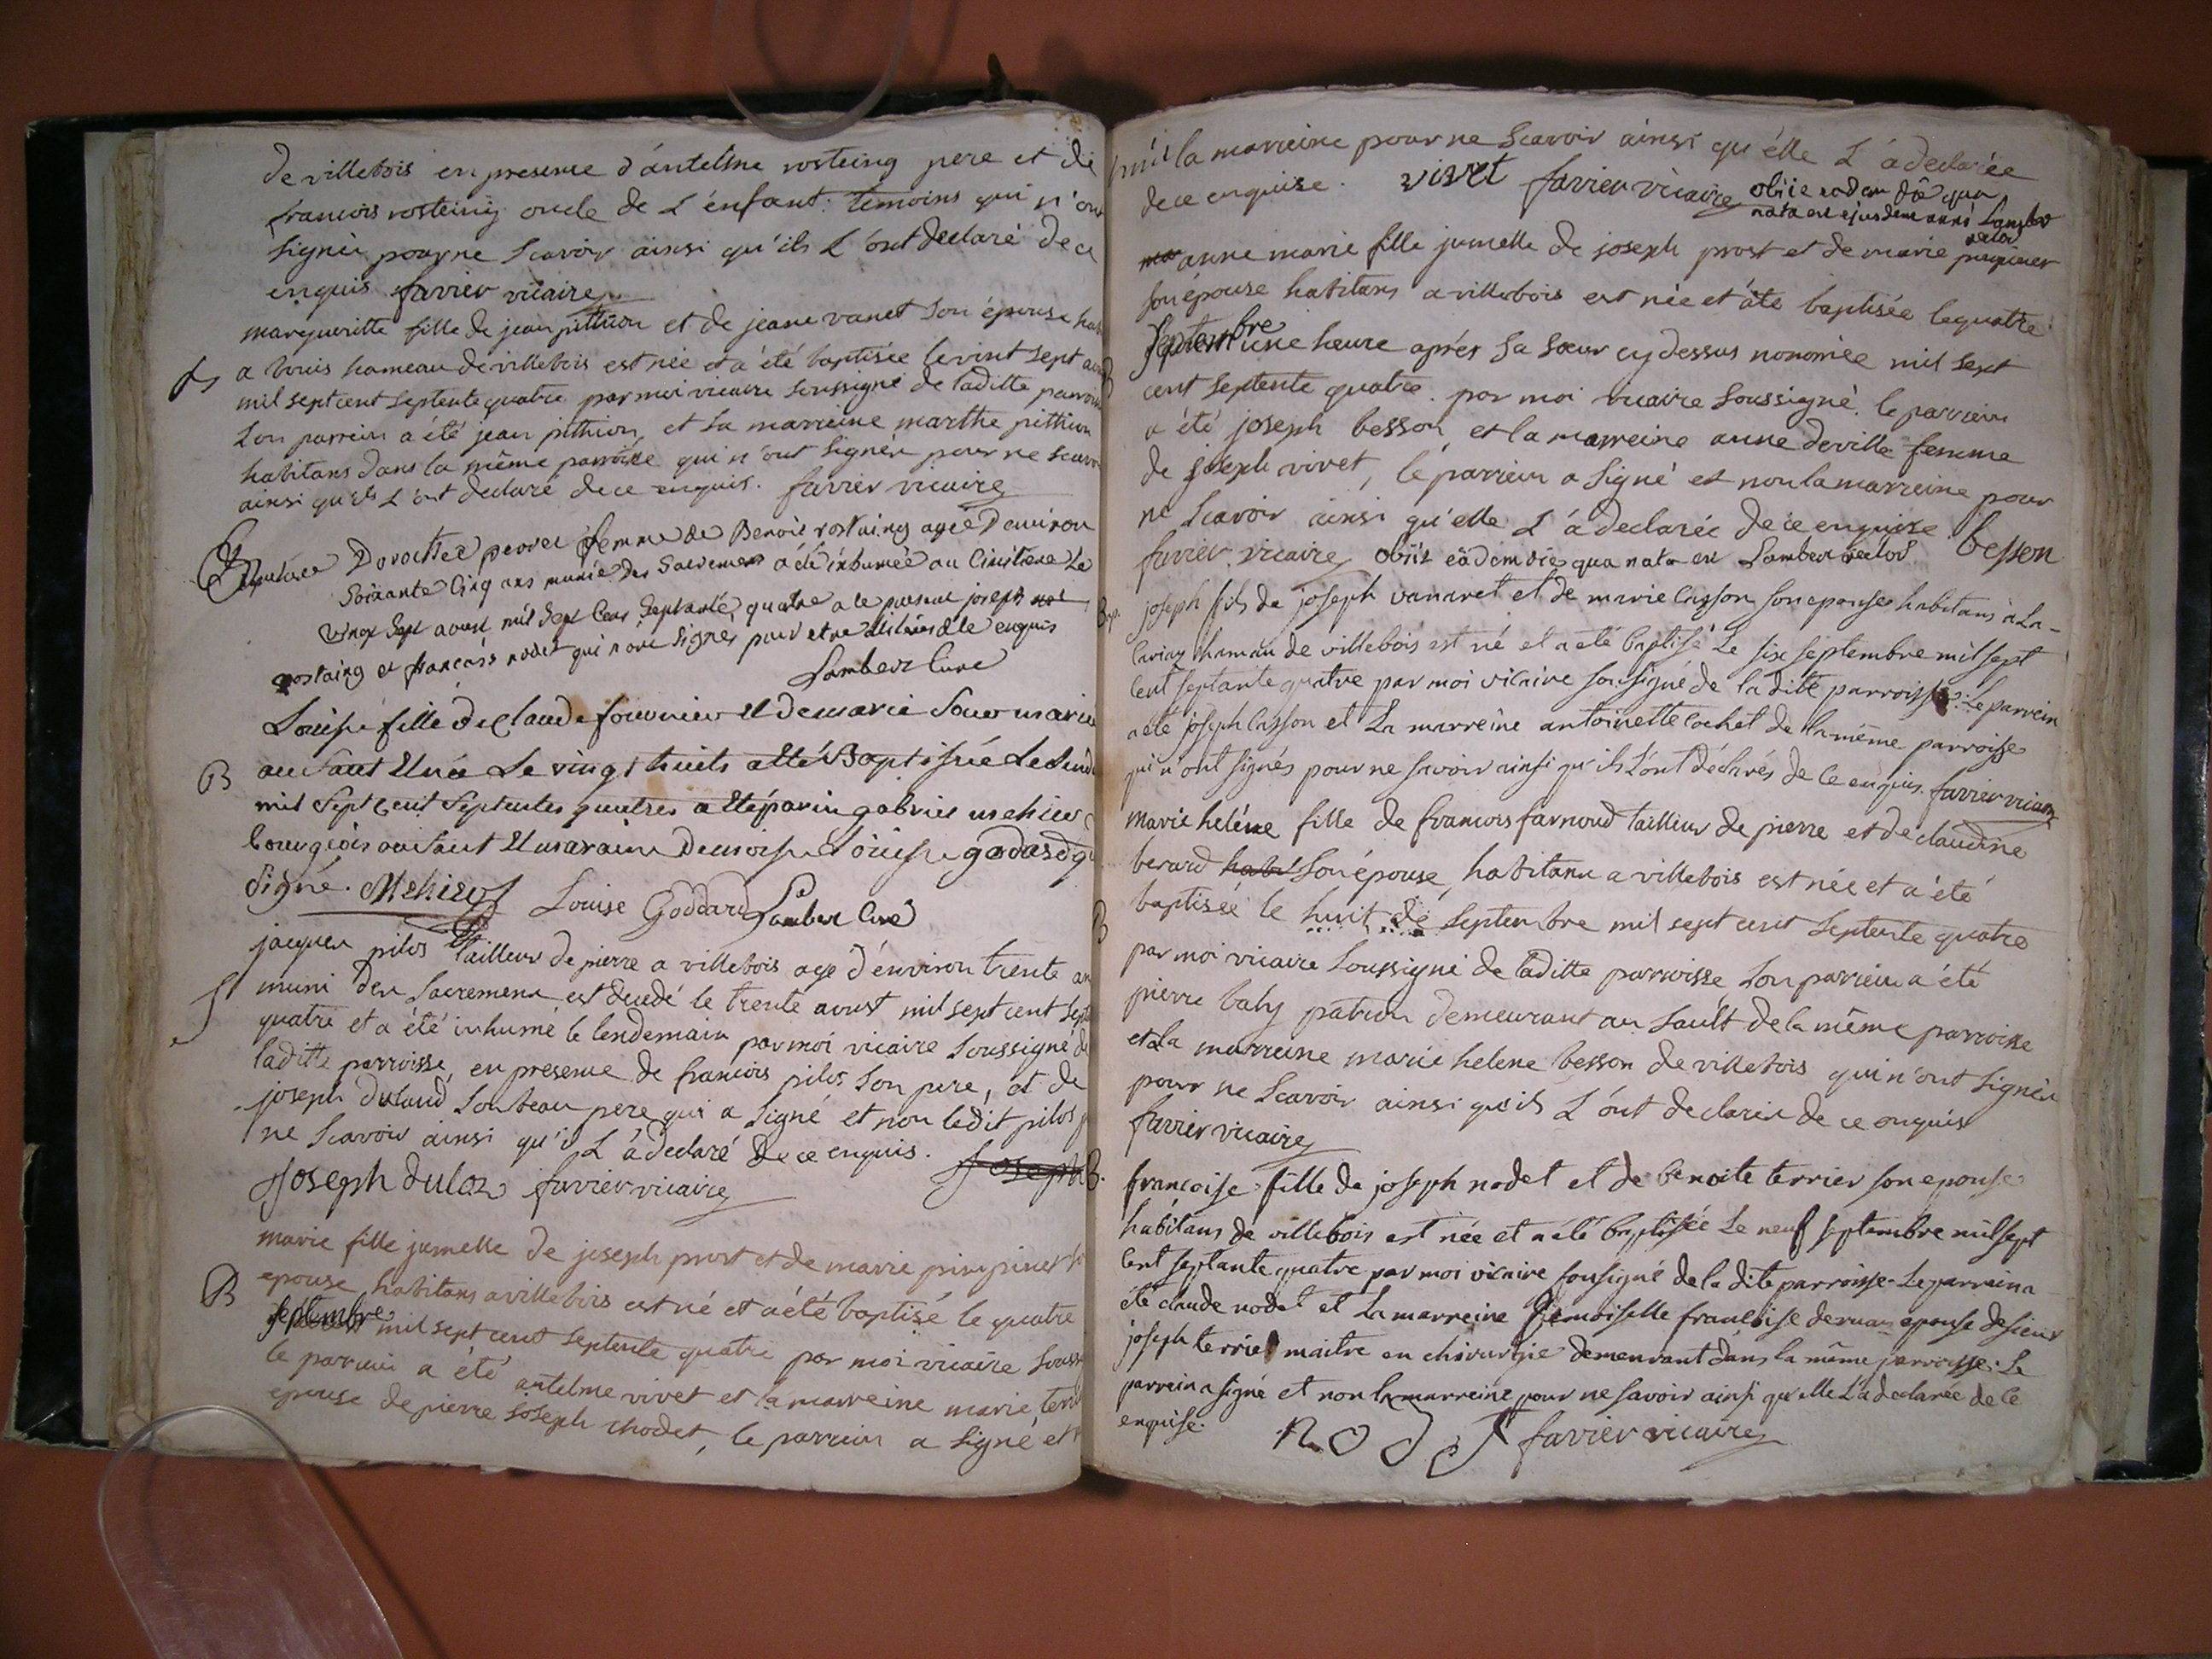 de villebois en presence d'antelme rosteing pere et de
francois rosteing oncle de L'énfant: temoins qui n'ont
signér pour ne Scavoir ainsi qu'ils L'ont declaré de ce
enquis favrier vicaire
marguerite fille de jean pithion et de jeane vanet son épouse
a bouis hameau de villebois est née et a été baptisée le vint sept
mil sept cent septente quatre par moi vicaire soussigné de laditte
Son parrein a été jean pithion, et la marreine marthe pithion
habitans dans la même parroisse qui n'ont signér pour ne scavoir
ainsi qu'ils L'ont declaré de ce enquis. favrier vicaire
femme de Benoit rostaing agée Denviron
Soixante Cinq ans munie des Sacremens a été inhumée au Cimitiere Le
vingt Sept aoust mil Sept Cens Septante quatre a le presence joseph
rostaing et francois nodet qui n'ont Signés pour etre de ce enquis
Lamberz Curé
Louise fille de Claude fournier et de marie
au Saut et née Le vingt huits a tté Baptisée Le
mil Sept Cent Septentes quatres a tté parin gabriel mehier
bourgeois au Saut et maraine Demoiselle Louise godard
Signé. Mehier Louise Goddard Lamber Curé
jacques pilos tailleur de pierre a villebois age d'environ trente
muni des Sacremens est decedé le trente aoust mil sept cent
quatre et a été inhumé le lendemain par moi vicaire soussigné
laditte parroisse, en presence de francois pilos son pere, et de
joseph dulaud son beau pere qui a signé et non ledit pilos
ne Scavoir ainsi qu'il L'a declaré de ce enquis. Joseph
Joseph duloz favrier vicaire
marie fille jumelle de joseph prost et de marie pinpinet
B epouse habitans a villebois est né et a été baptisé le quatre
septembre mil sept cent septente quatre par moi vicaire
le parrein a été antelme vivet et la marreine marie
epouse de pierre joseph chodet, le parrein a signé et
la marreine pour ne Scavoir ainsi qu'élle L'a declarée
de ce enquise. vivet favrier vicaire
obiit eadem die qua
nata est ejusdem anni Lamber
rector
anne marie fille jumelle de joseph prost et de marie pinpinet
son épouse habitans a villebois est née et a été baptisée le quatre
septembre une heure aprés sa soeur cy dessus nommée mil sept
cent septente quatre. par moi vicaire soussigné. le parrein
a été joseph besson, et la marreine anne deville femme
de joseph vivet, lé parrein a signé et non la marreine pour
ne Scavoir ainsi qu'elle L'a declarée de ce enquise
favrier vicaire obiit eadem die qua nata est Lamber rector besson
joseph fils de joseph vanaret et de marie Casson son epouse habitans a La-
hamau de villebois est né et a été baptisé Le six septembre mil sept
cent septante quatre par moi vicaire sousigné de la dite parroisse: Le parrein
a été joseph Casson et La marreine antoinette cochet de la même parroisse
qui n'ont signés pour ne savoir ainsi qu'ils L'ont déclarés de ce enquis favrier vicaire
marie heléne fille de francois farnoud tailleur de pierre et de claudine
berard son épouse, habitans a villebois est née et a été
B baptisée le huit de septembre mil sept cent septente quatre
par moi vicaire soussigné de laditte parroisse son parrein a été
pierre baly patron demeurant au Sault de la même parroisse
et la marreine marie helene besson de villebois qui n'ont signér
pour ne Scavoir ainsi qu'ils L'ont declarér de ce enquis
favrier vicaire
B. francoise fille de joseph nodet et de benoite terrier son epouse
habitans de villebois est née et a été baptisée Le neuf septembre mil sept
cent septante quatre par moi vicaire sousigné de la dite parroisse. Le parrein a
été claude nodet et La marreine Demoiselle francoise epouse de sieur
joseph terrier maitre en chirurgie demeurant dans la même parroisse. Le
parrein a signé et non la marreine pour ne savoir ainsi qu'elle L'a declarée de ce
enquise. nodet favrier vicaire